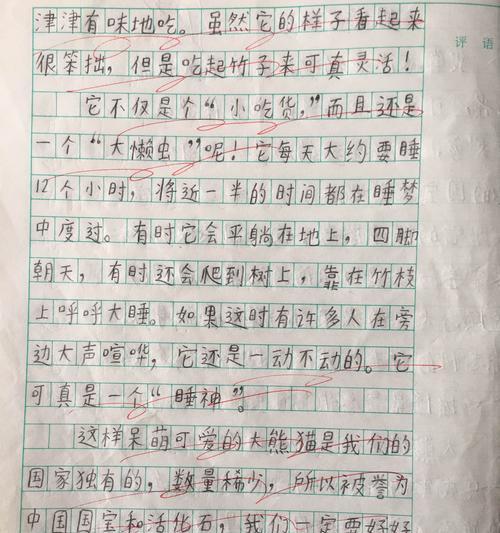 津津有味地吃。虽然它的样子看起来
评语
很笨拙，但是吃起竹子来可真灵活！
它不仅是个“小吃货，”而且还是
一个“大懒虫”呢！它每天大约要睡
12个小时，将近一半的时间都在睡梦
中度过。有时它会平躺在地上，四脚
朝天，有时还会爬到树上，靠在竹枝
上呼呼大睡。如果这时有许多人在旁
边大声喧哗，它还是一动不动的。它
可真是一个“睡神”。
这样呆萌可爱的大熊猫是我们的
国家独有的，数量稀少，所以被誉为
中国国宝和活化石，我们一定要好好